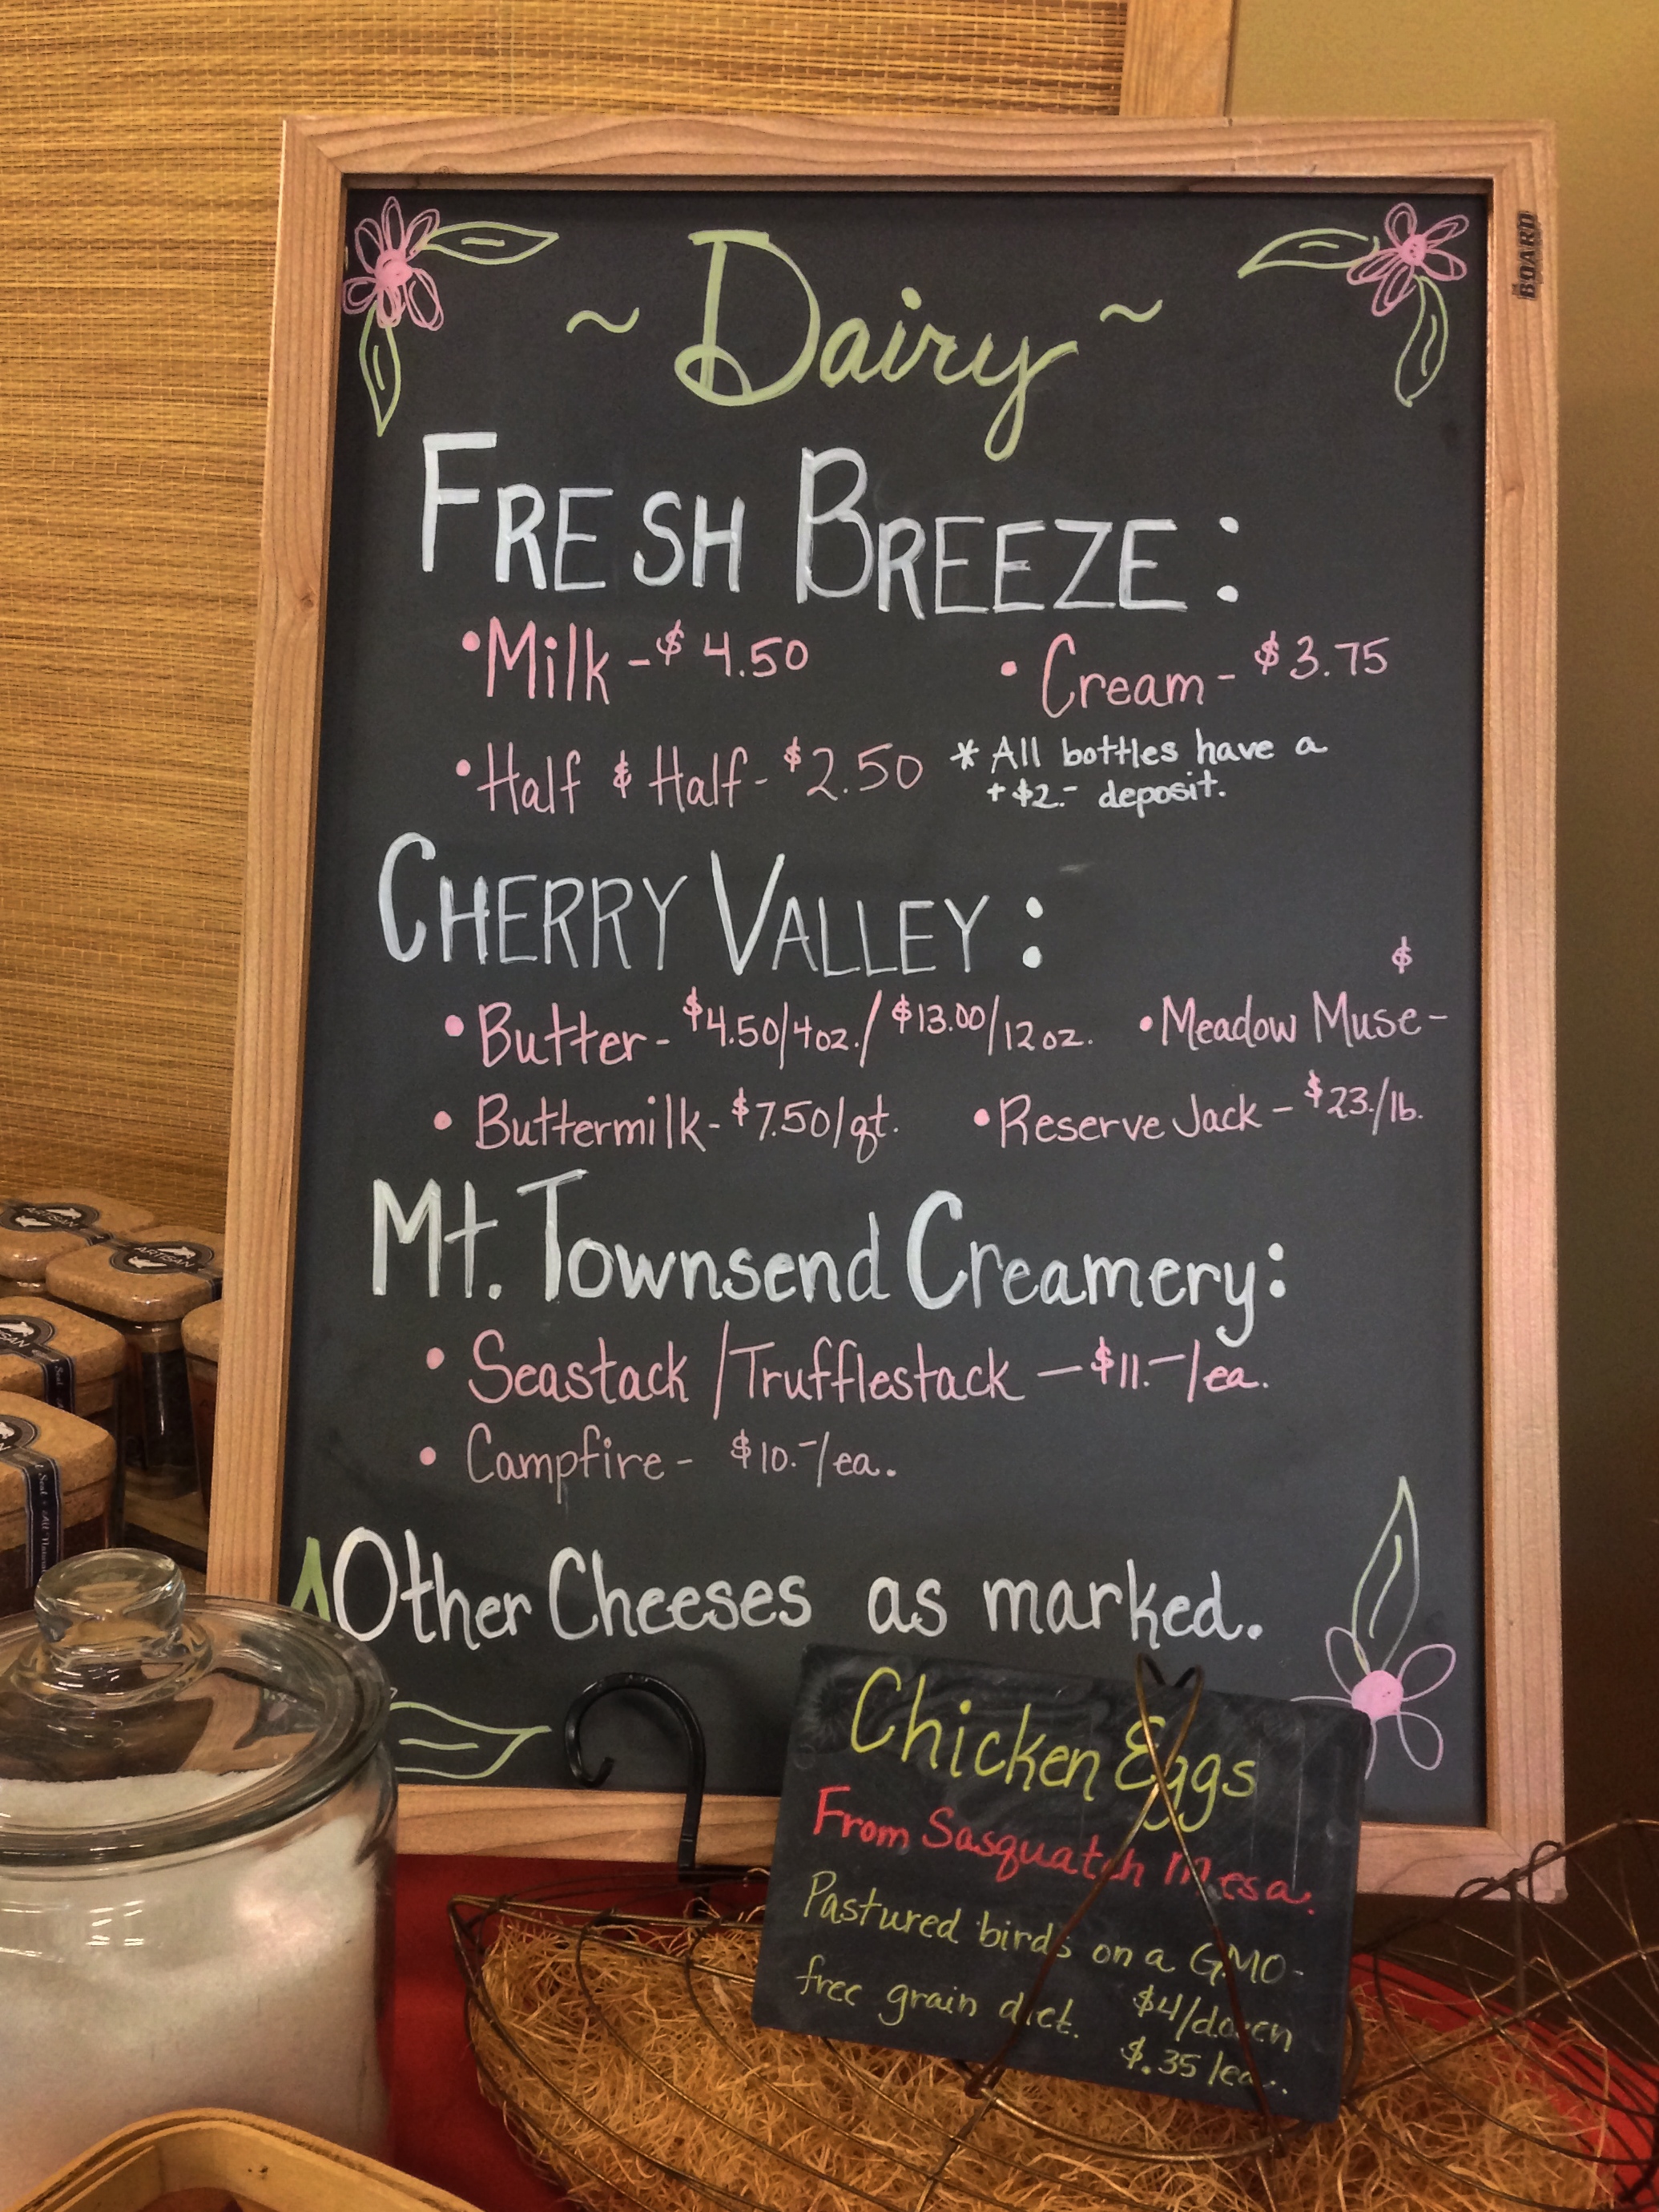 BOARD
~ Dairy ~
FRESH BREEZE:
• Milk - $4.50 • Cream - $3.75
• Half & Half - $2.50
* All bottles have a
+ $2.- deposit.
CHERRY VALLEY:
$
• Butter - $4.50/4oz./$13.00/12oz. • Meadow Muse -
• Buttermilk - $7.50/qt. • Reserve Jack - $23./lb.
Mt. Townsend Creamery:
• Seastack /Trufflestack — $11.-/ea.
• Campfire - $10.-/ea.
Other Cheeses as marked.
Chicken Eggs
From Sasquatch Mesa.
Pastured birds on a GMO-
free grain diet. $4/dozen
$.35/ea.
ARTISAN
ARTISAN